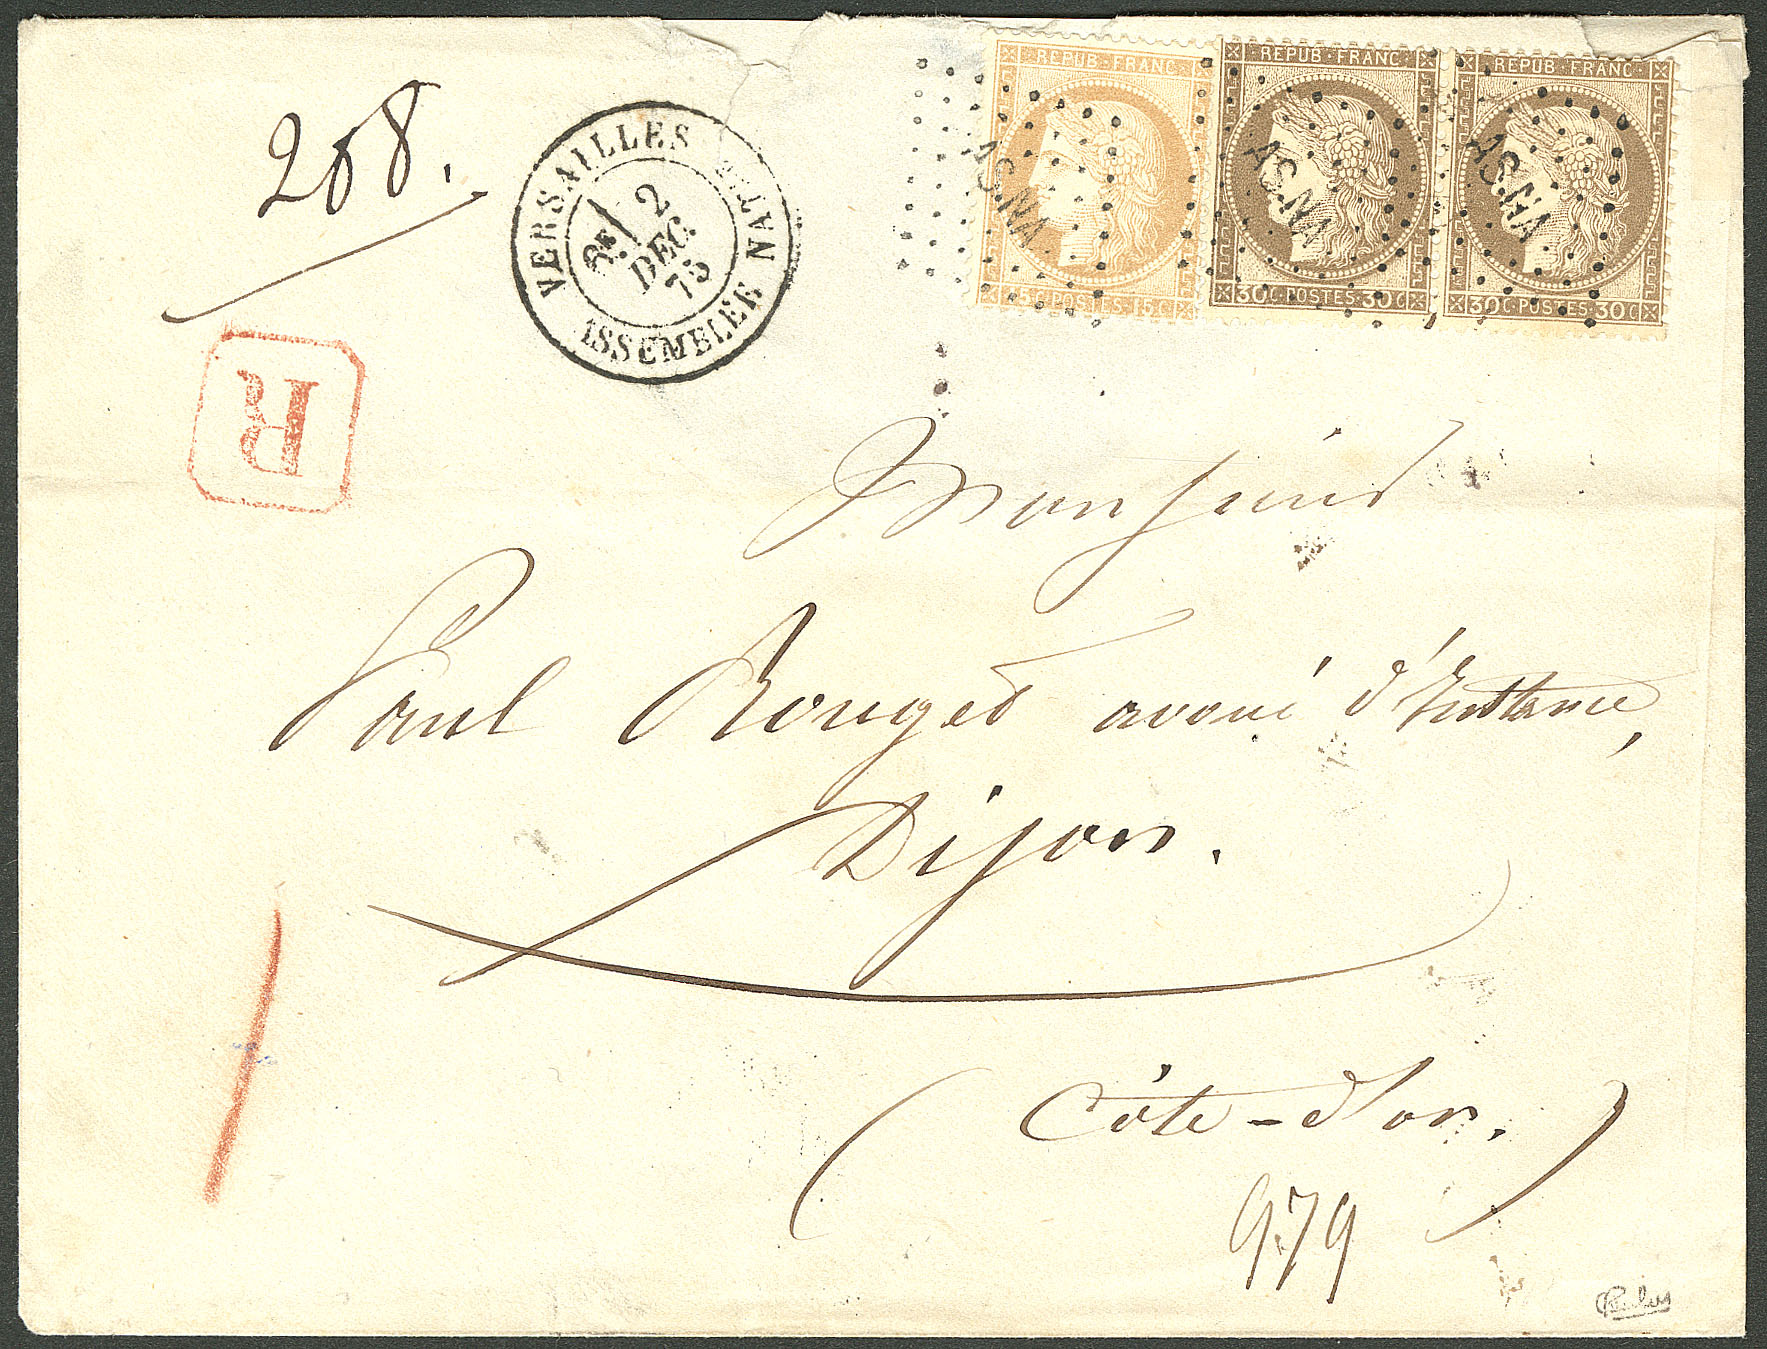 208.
VERSAILLES ASSEMBLÉE NATLE
6E 2 DEC. 75
REPUB·FRANC
15C·POSTES·15C
AS.NA
REPUB·FRANC
30C·POSTES·30C
AS.NA
REPUB·FRANC
30C·POSTES·30C
AS.NA
R
Monsieur
Paul Rouget avoué d'Instance,
Dijon.
(Côte-d'or.)
979